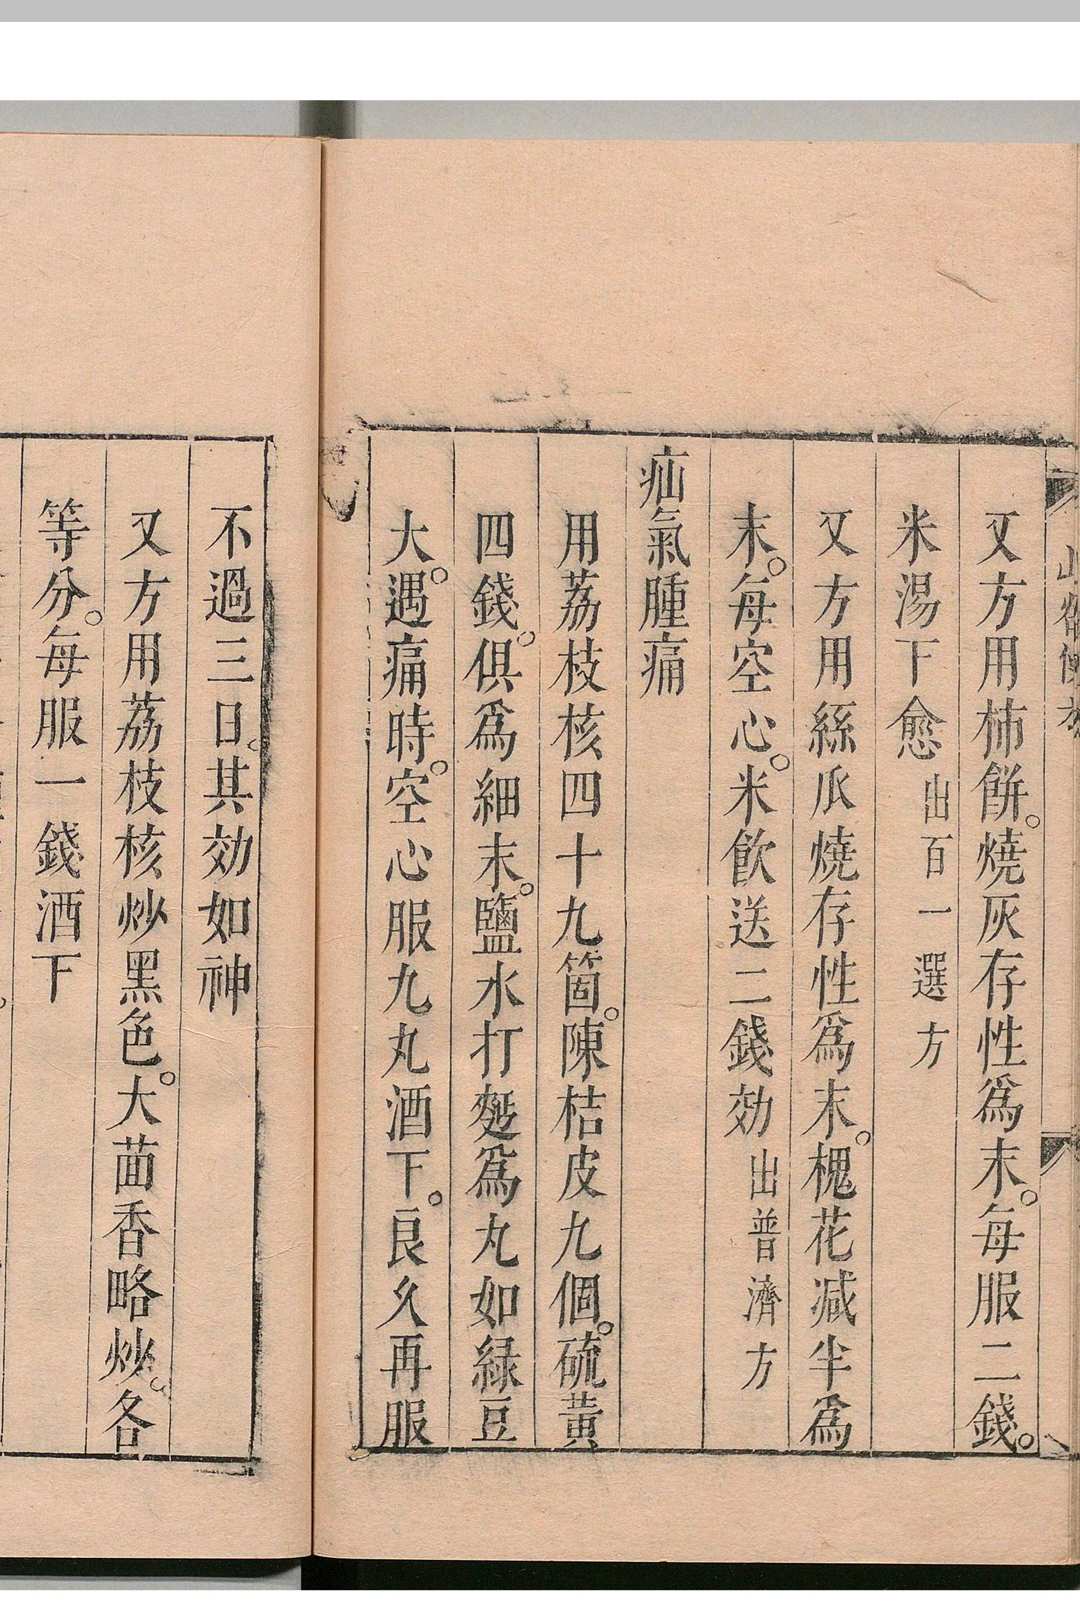 又方用柿餅。燒灰存性爲末。每服二錢。
米湯下愈 出百一選方
又方用絲瓜燒存性爲末。槐花减半爲
末。每空心。米飲送二錢効 出普濟方
疝氣腫痛
用荔枝核四十九箇。陳桔皮九個。硫黃
四錢。俱爲細末。鹽水打麪爲丸如緑豆
大。遇痛時。空心服九丸酒下。良久再服
不過三日。其効如神
又方用荔枝核炒黑色。大茴香略炒。各
等分。每服一錢酒下